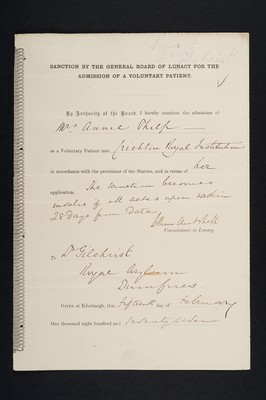 SANCTION BY THE GENERAL BOARD OF LUNACY FOR THE
ADMISSION OF A VOLUNTARY PATIENT.
By Authority of the Board, I hereby sanction the admission of
Mrs Annie Philp
as a Voluntary Patient into Crichton Royal Institution
in accordance with the provisions of the Statute, and in terms of her
application. The sanction becomes
invalid if not acted upon within
28 days from date.
Commissioner in Lunacy.
To Dr Gilchrist
Royal Asylum
Dumfries
GIVEN at Edinburgh, this Fifteenth day of February
One thousand eight hundred and seventy seven